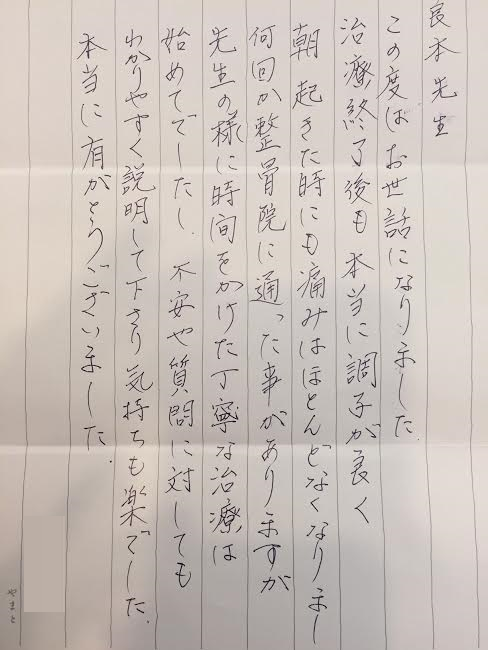 良本先生
この度はお世話になりました.
治療終了後も本当に調子が良く
朝起きた時にも痛みはほとんどなくなりまし
何回か整骨院に通った事がありますが
先生の様に時間をかけた丁寧な治療は
始めてでしたし、不安や質問に対しても
わかりやすく説明して下さり気持ちも楽でした.
本当に有がとうございました.
やまと